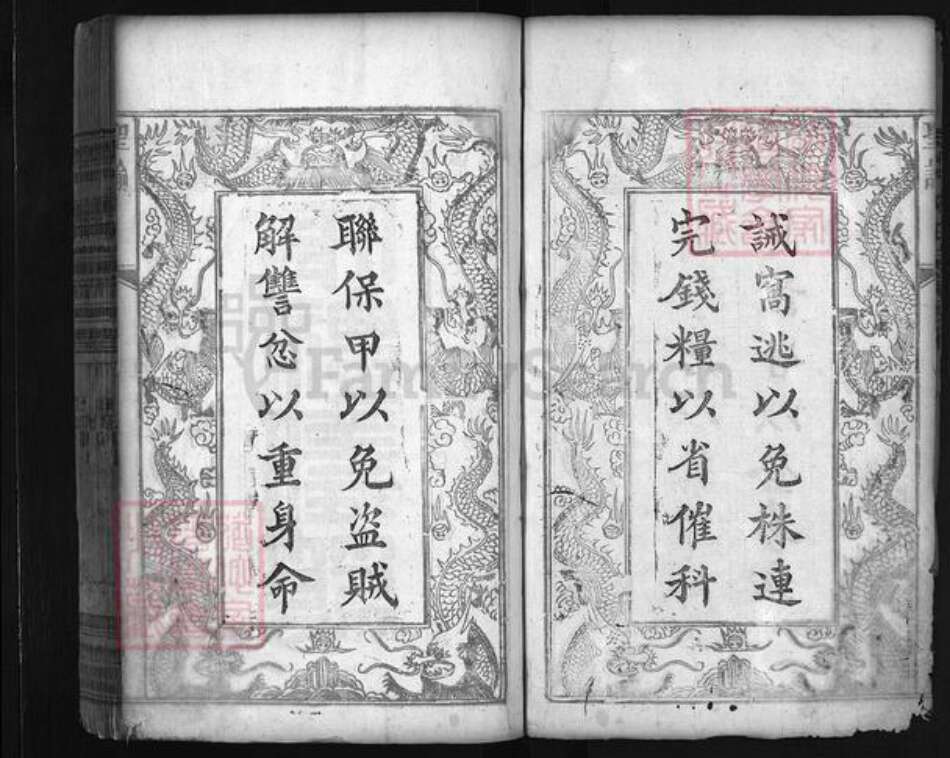 誡窩逃以免株連
完錢糧以省催科
聯保甲以免盜賊
解讐忿以重身命
FamilySearch